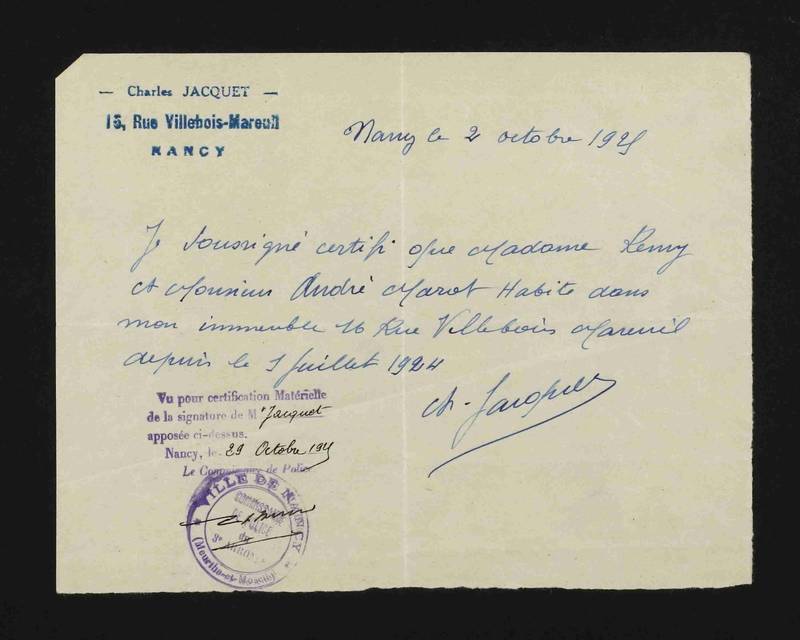 — Charles JACQUET —
15, Rue Villebois-Mareuil
NANCY
Nancy le 2 octobre 1925
Je soussigné certifi que Madame Remy
et Monsieur André Marot Habite dans
mon immeuble 16 Rue Villebois Mareuil
depuis le 1 Juillet 1924
Ch. Jacquet
Vu pour certification Matérielle
de la signature de Mr Jacquet
apposée ci-dessus.
Nancy, le 29 Octobre 1925
Le Commissaire de Police
VILLE DE NANCY
COMMISSARIAT
DE POLICE
du
3e ARRONDt
(Meurthe-et-Moselle)